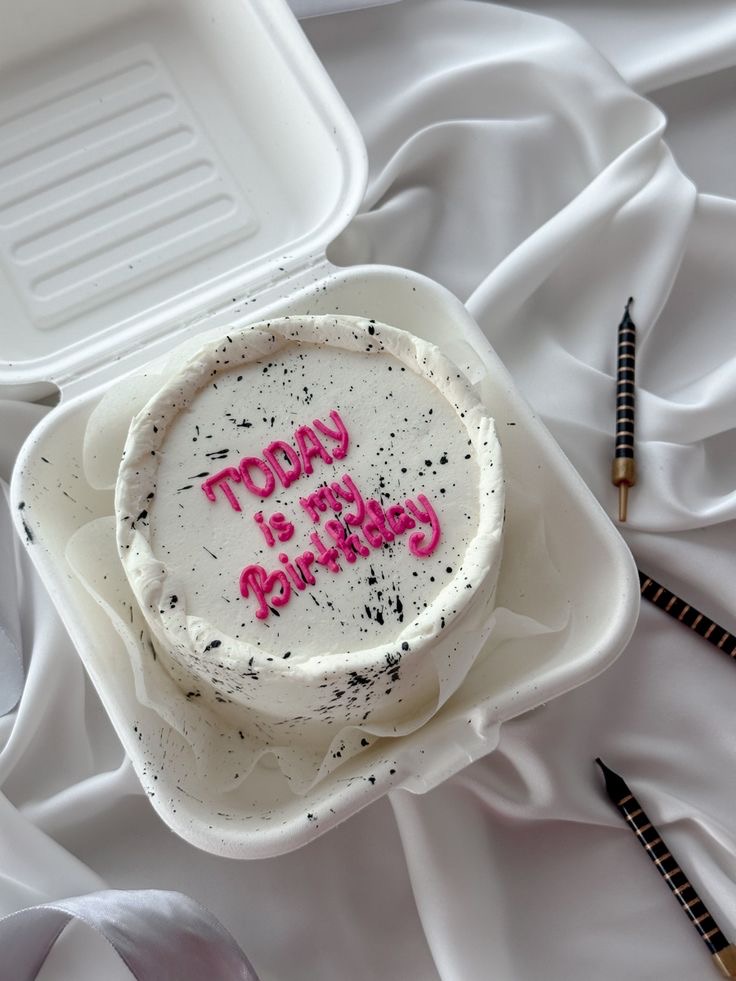 TODAY
is my
Birthday